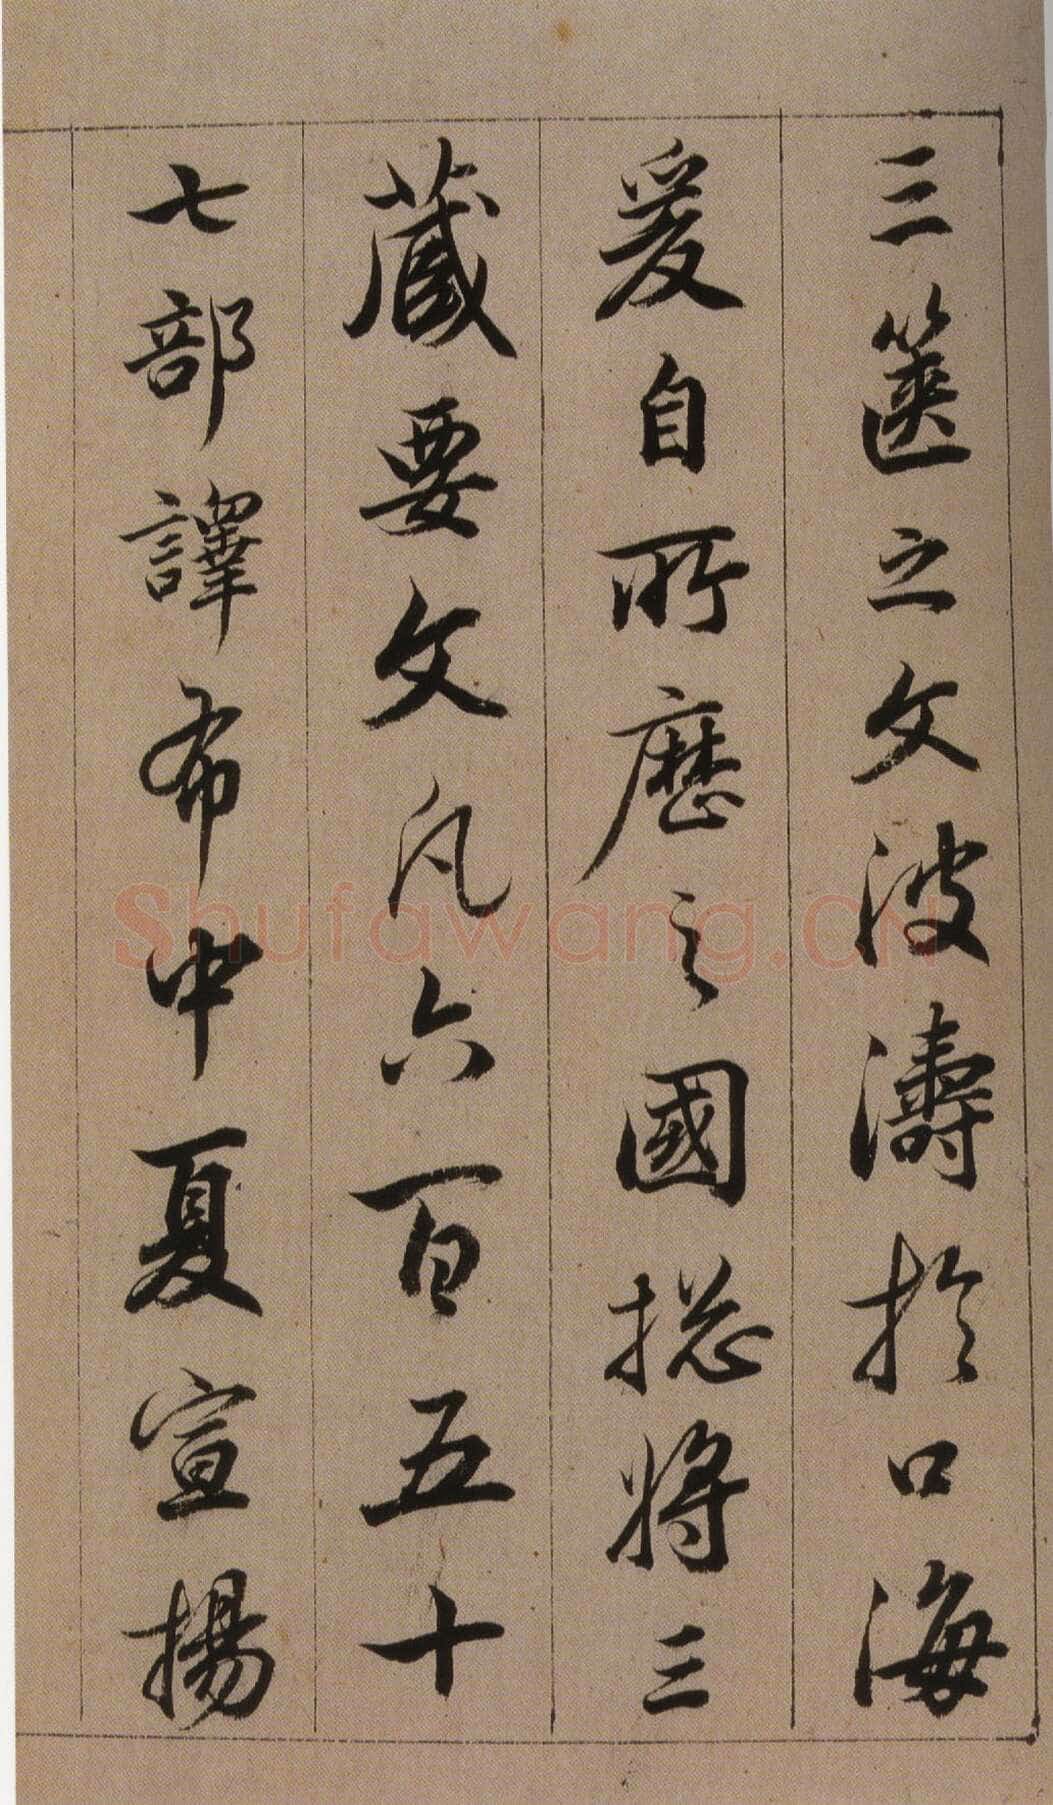 三篋之文波濤於口海
爰自所歷之國總將三
藏要文凡六百五十
七部譯布中夏宣揚
Shufawang.CN